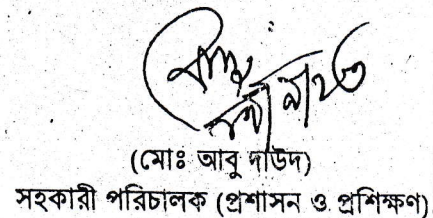 (মোঃ আবু দাউদ)
সহকারী পরিচালক (প্রশাসন ও প্রশিক্ষণ)